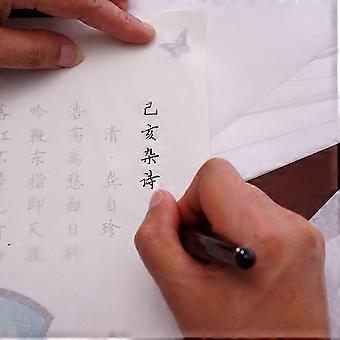 己亥杂诗
清 龚自珍
浩荡离愁白日斜
吟鞭东指即天涯
落红不是无